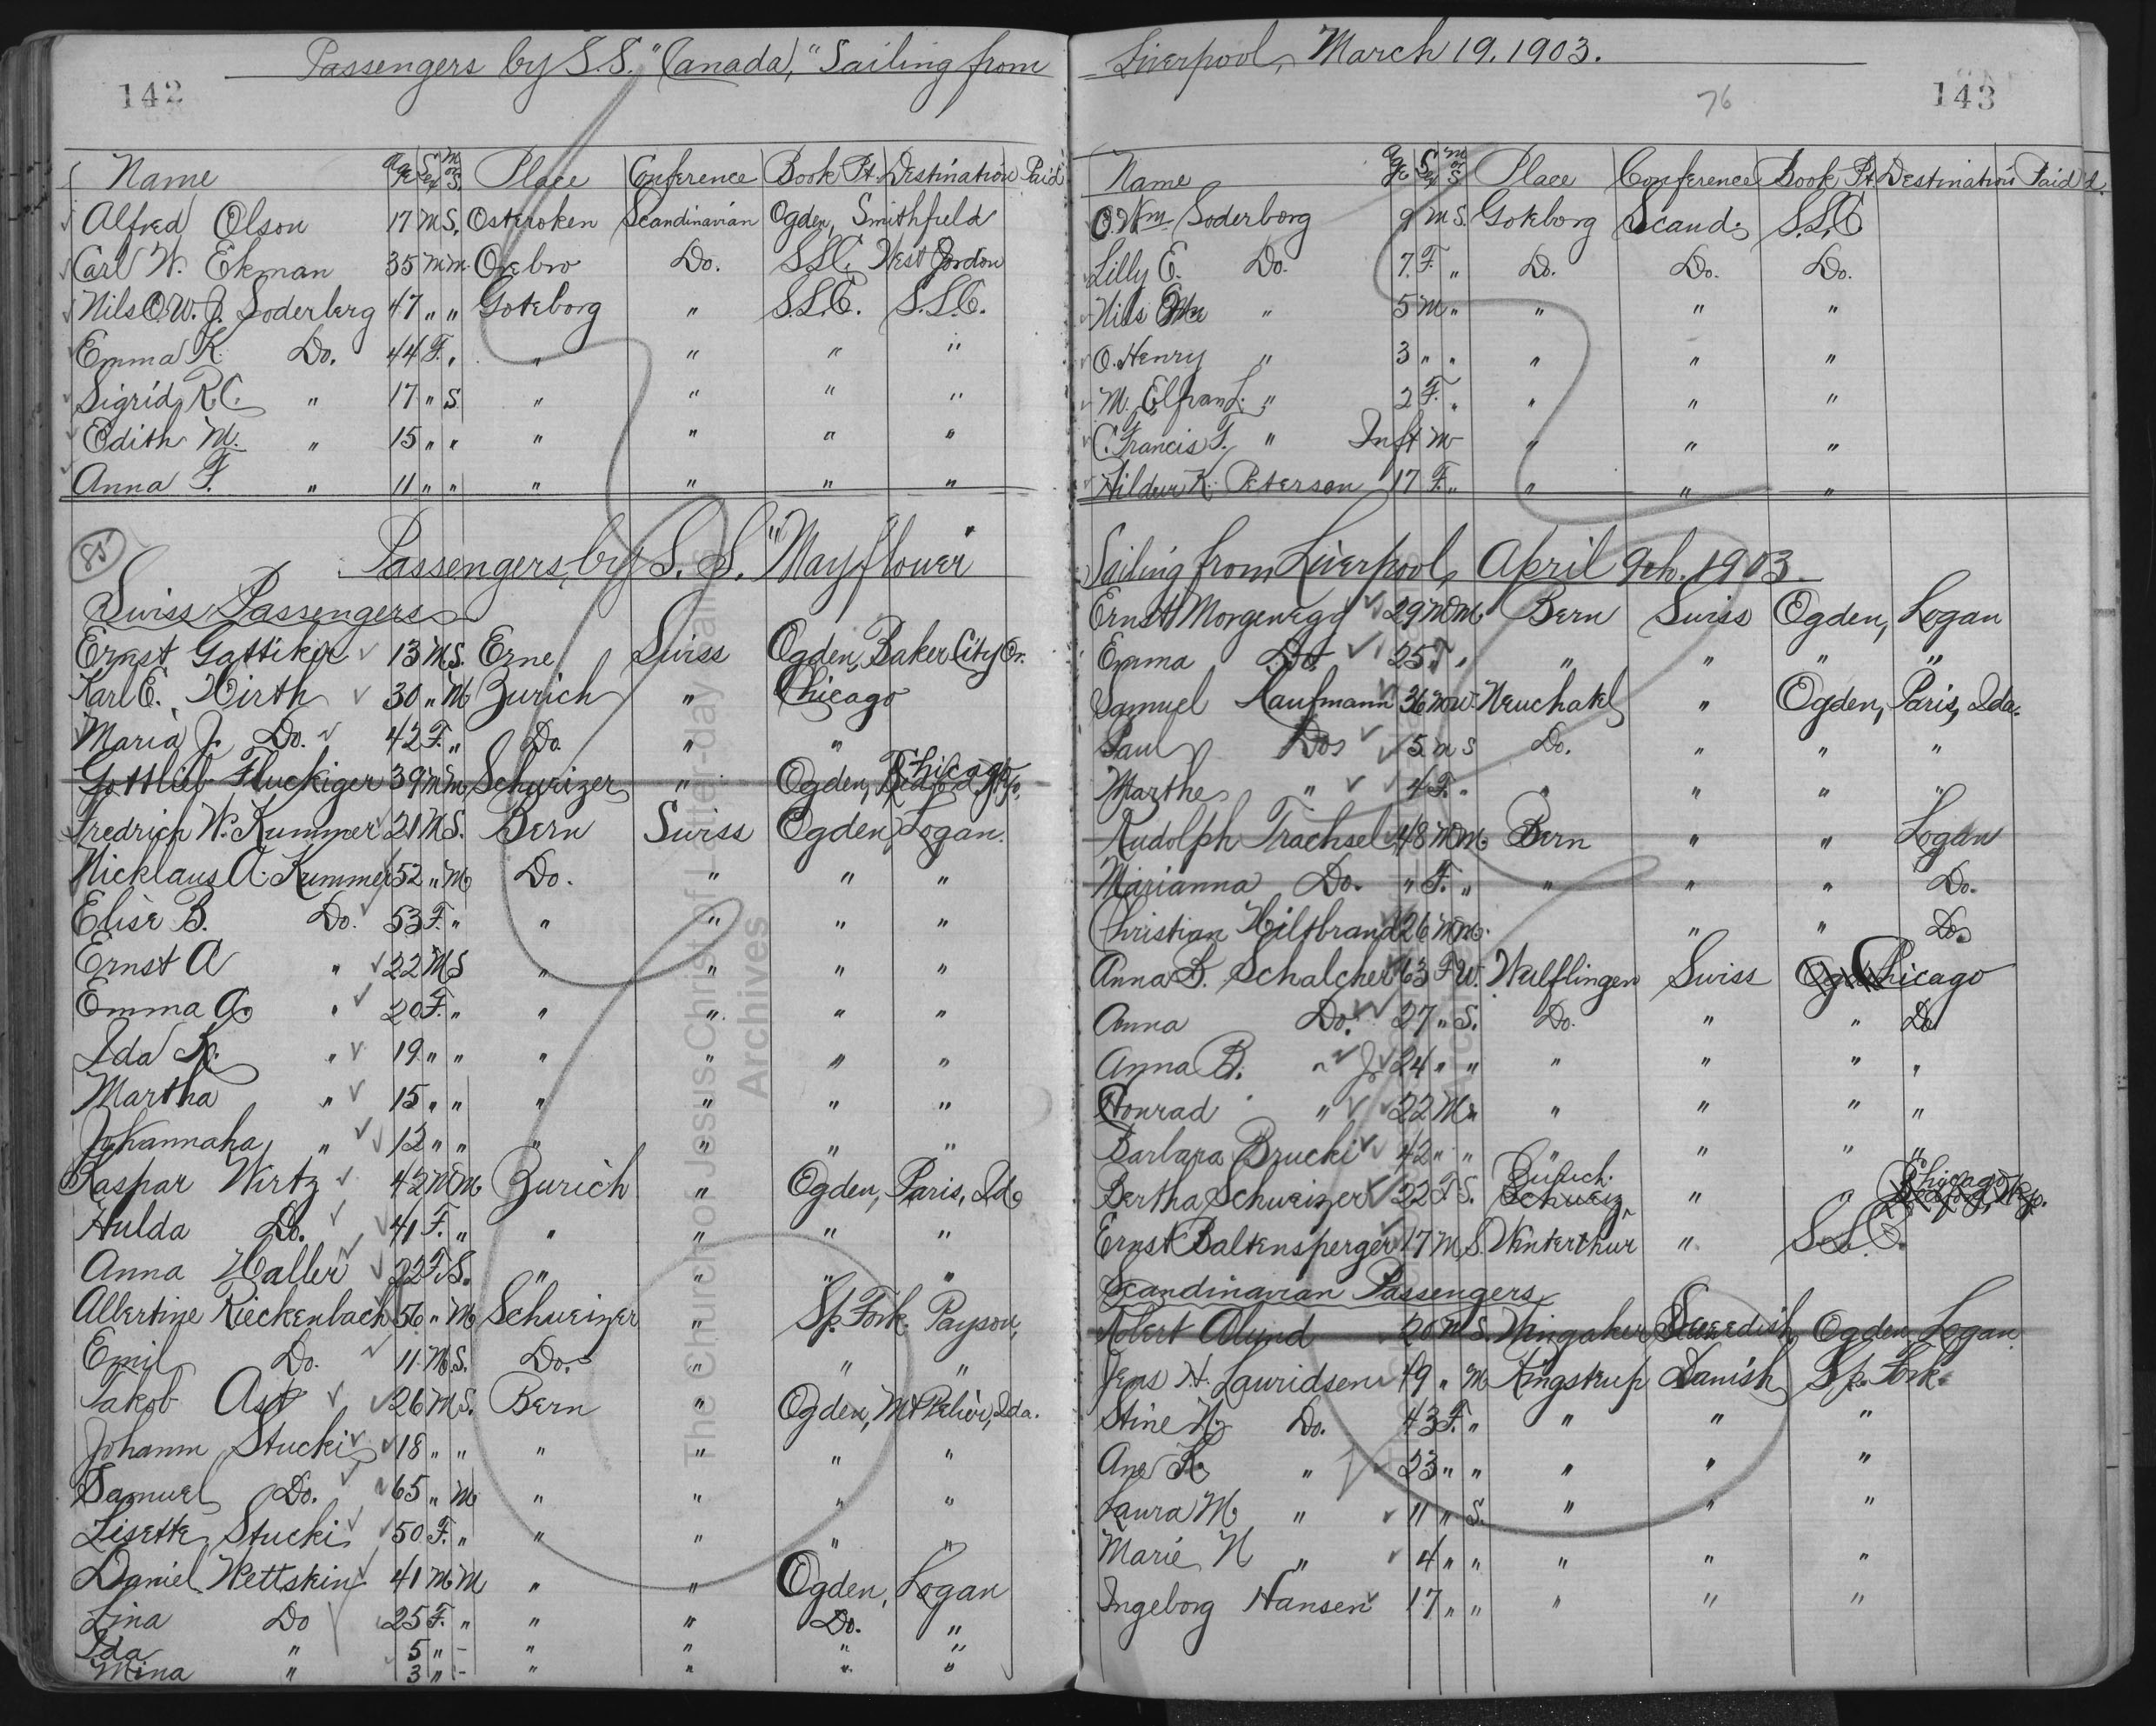 142
Passengers by S.S. "Canada," Sailing from
Name Age Sex M or S. Place Conference Book Pt. Destination Paid
Alfred Olson 17 M S. Osteroken Scandinavian Ogden, Smithfield
Carl W. Ekman 35 M m. Orebro Do. S.L.C. West Jordon
Nils O.W.J. Soderberg 47 " " Goteborg " S.L.C. S.L.C.
Emma K. Do. 44 F. " " " " "
Sigrid R.C. " 17 " S " " " "
Edith M. " 15 " " " " " "
Anna F. " 11 " " " " " "
85
Passengers by S. S. "Mayflower"
Swiss Passengers
Ernst Gattiker 13 M S. Erne Swiss Ogden, Baker City Or.
Karl E. Hirth 30 " M Zurich " Chicago
Maria J. Do. 42 F. " Do. " "
Gottlieb Fluckiger 39 M m Schweizer " Ogden, Chicago
Fredrich W. Kummer 21 M S. Bern Swiss Ogden, Logan.
Nicklaus A. Kummer 52 " M Do. " " "
Elise B. Do. 53 F. " " " " "
Ernst A " 22 M S " " " "
Emma A. " 20 F. " " " " "
Ida R. " 19 " " " " " "
Martha " 15 " " " " " "
Johannaha " 12 " " " " " "
Kaspar Wirtz 42 M M Zurich " Ogden, Paris, Ida
Hulda Do. 41 F. " " " " "
Anna Haller 22 F S. " " " "
Albertine Rieckenbach 56 " M Schweizer " Sp. Fork. Payson,
Emil Do. 11 M S. Do. " " "
Jakob Ast 26 M S. Bern " Ogden, Mt Pelier, Ida.
Johann Stucki 18 " " " " " "
Samuel Do. 65 " M " " " "
Lisette Stucki 50 F. " " " " "
Daniel Wettskin 41 M M " " Ogden, Logan
Lina Do 25 F. " " " Do. "
Ida " 5 " - " " " "
Mina " 3 " - " " " "
Liverpool, March 19, 1903.
76
143
Name Age Sex M or S Place Conference Book Pt Destination Paid
O. Wm. Soderborg 9 M S. Goteborg Scand. S.L.C
Lilly E. Do. 7. F. " Do. Do. Do.
Nils " 5 M " " " "
O. Henry " 3 " " " " "
M. Elfran L. " 2 F. " " " "
C. Francis F. " Inft M " " "
Hildur K. Peterson 17 F. " " " "
Sailing from Liverpool, April 9th. 1903
Ernst Morgenegg 29 M M. Bern Swiss Ogden, Logan
Emma Do. 25 F. " " " " "
Samuel Kaufmann 36 M W. Neuchatel " Ogden, Paris, Ida.
Paul Do 5 M S Do. " " "
Marthe " 4 F. " " " " "
Rudolph Trachsel 48 M M Bern " " Logan
Marianna Do. " F. " " " " Do.
Christian Hiltbrand 26 M M. " " Do.
Anna B. Schalcher 63 F W. Wulflingen Swiss Chicago
Anna Do. 27 " S. Do. " " Do
Anna B. " Jr 24 " " " " " "
Conrad " 22 M " " " " "
Barbara Brucki 42 " " " " " "
Bertha Schweizer 22 F S. Zürich " " Chicago
Ernst Baltensperger 17 M S. Winterthur " S.L.C.
Scandinavian Passengers
Robert Olund 20 M S. Wingaker Sweedish Ogden Logan
Jens H. Lauridsen 49 " M Ringstrup Danish Sp. Fork
Stine N. Do. 43 F. " " " "
Ane K. " 23 " " " " "
Laura M " 11 " S. " " "
Marie N " 4 " " " " "
Ingeborg Hansen 17 " " " " "
The Church of Jesus Christ of Latter-day Saints
Archives